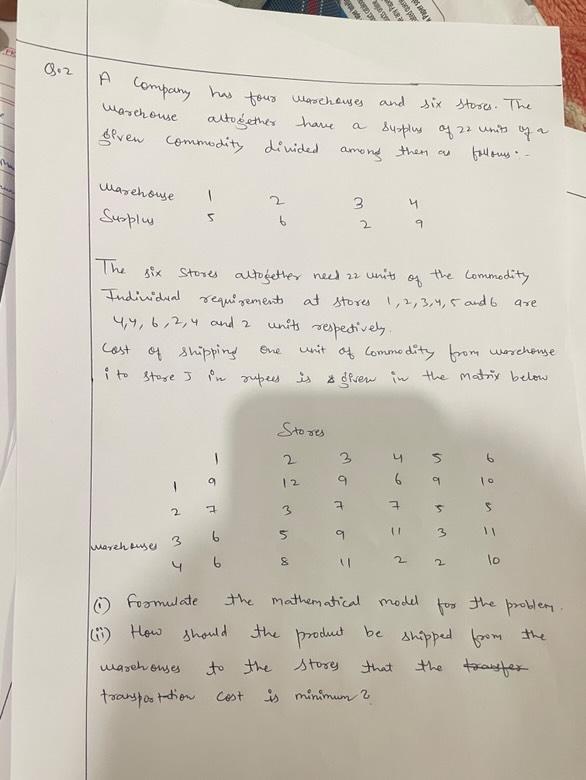 Q.2 A Company has four warehouses and six stores. The
warehouse altogether have a surplus of 22 units of a
given commodity divided among them as follows:-
Warehouse 1 2 3 4
Surplus 5 6 2 9
The six stores altogether need 22 units of the commodity
Individual requirements at stores 1,2,3,4,5 and 6 are
4,4,6,2,4 and 2 units respectively.
Cost of shipping one unit of commodity from warehouse
i to store J in rupees is given in the matrix below
Stores
1 2 3 4 5 6
1 9 12 9 6 9 10
2 7 3 7 7 5 5
warehouses 3 6 5 9 11 3 11
4 6 8 11 2 2 10
(i) Formulate the mathematical model for the problem.
(ii) How should the product be shipped from the
warehouses to the stores that the transfer
transportation cost is minimum?